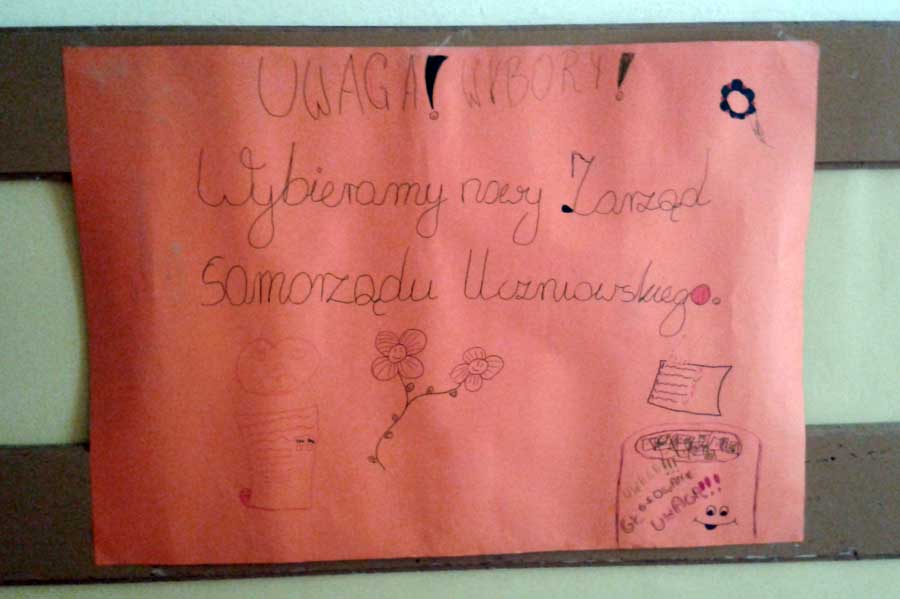 UWAGA! WYBORY!
Wybieramy nowy Zarząd
Samorządu Uczniowskiego.
GŁOSOWANIE
UWAGA!!!